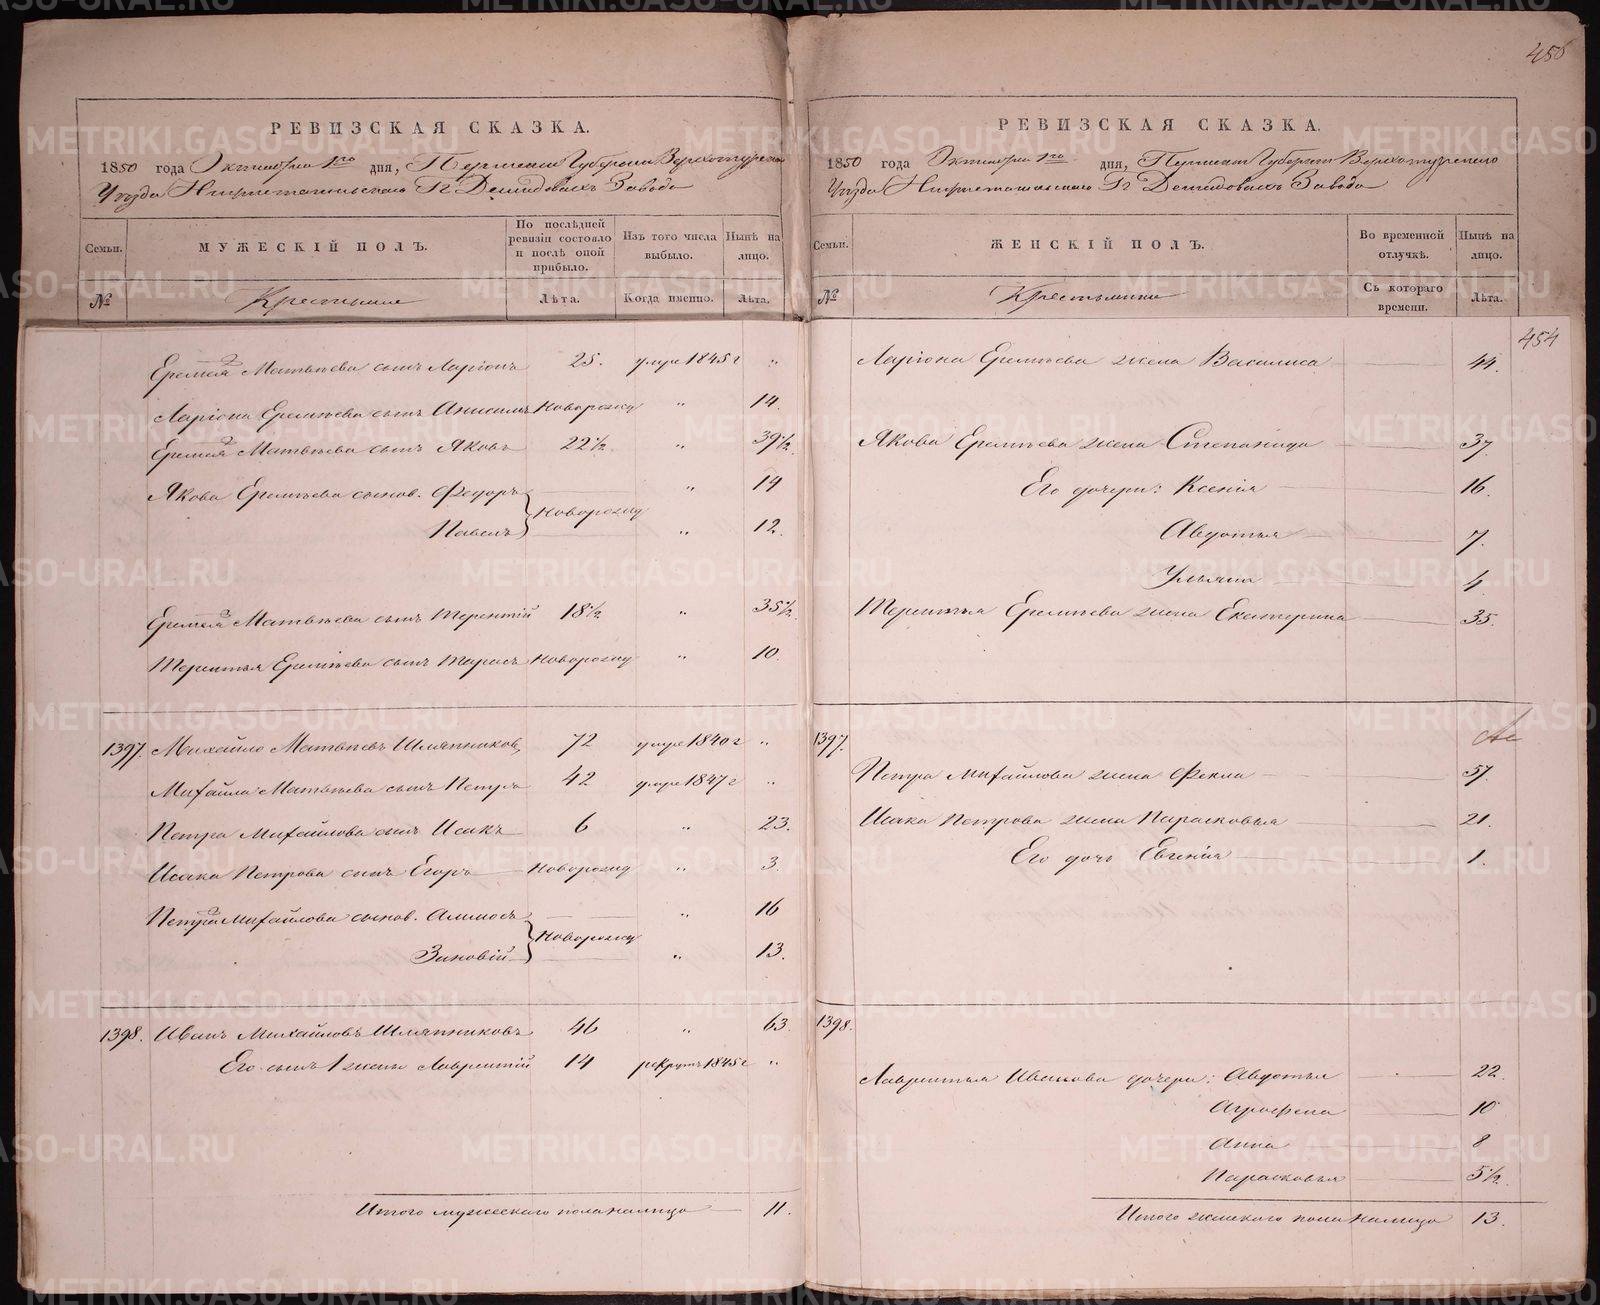 456
РЕВИЗСКАЯ СКАЗКА.
1850 года Октября 1го дня, Пермской Губернии Верхотурскаго
Уѣзда Нижнетагильскаго Гг Демидовыхъ Завода
Семьи. МУЖЕСКІЙ ПОЛЪ. По послѣдней ревизіи состояло и послѣ оной прибыло. Изъ того числа выбыло. Нынѣ на лицо.
№ Крестьяне Лѣта. Когда именно. Лѣта.
Еремея Матвѣева сынъ Ларіонъ 25. умре 1845 г "
Ларіона Еремѣева сынъ Анисимъ Новорожд " 14.
Еремея Матвѣева сынъ Яковъ 22½ " 39½
Якова Еремѣева сынов. Федоръ " 14
Новорожд
Павелъ " 12.
Еремея Матвѣева сынъ Терентій 18½ " 35½
Терентья Еремѣева сынъ Тарасъ Новорожд " 10.
1397. Михайло Матвѣевъ Шляпников 72 умре 1840 г "
Михайла Матвѣева сынъ Петръ 42 умре 1847 г "
Петра Михайлова сынъ Исакъ 6 " 23.
Исака Петрова сынъ Егоръ Новорожд " 3.
Петра Михайлова сынов. Амносъ " 16
Новорожд
Зиновій " 13.
1398. Иванъ Михайловъ Шляпниковъ 46 " 63.
Его сынъ 1 жены Лаврентій 14 рекрутъ 1845 г "
Итого мужескаго пола налицо 11.
РЕВИЗСКАЯ СКАЗКА.
1850 года Октября 1го дня, Пермской Губерніи Верхотурскаго
Уѣзда Нижнетагильскаго Гг Демидовыхъ Завода
Семьи. ЖЕНСКІЙ ПОЛЪ. Во временной отлучкѣ. Нынѣ на лицо.
№ Крестьянки Съ котораго времени. Лѣта.
454
Ларіона Еремѣева жена Василиса 44.
Якова Еремѣева жена Степанида 37.
Его дочери: Ксенія 16.
Авдотья 7.
Ульяна 4
Терентья Еремѣева жена Екатерина 35.
1397.
Петра Михайлова жена Фекла 57.
Исака Петрова жена Парасковья 21.
Его дочь Евгенія 1.
1398.
Лаврентья Иванова дочери: Авдотья 22.
Аграфена 10
Анна 8
Парасковья 5½
Итого женскаго пола налицо 13.
METRIKI.GASO-URAL.RU